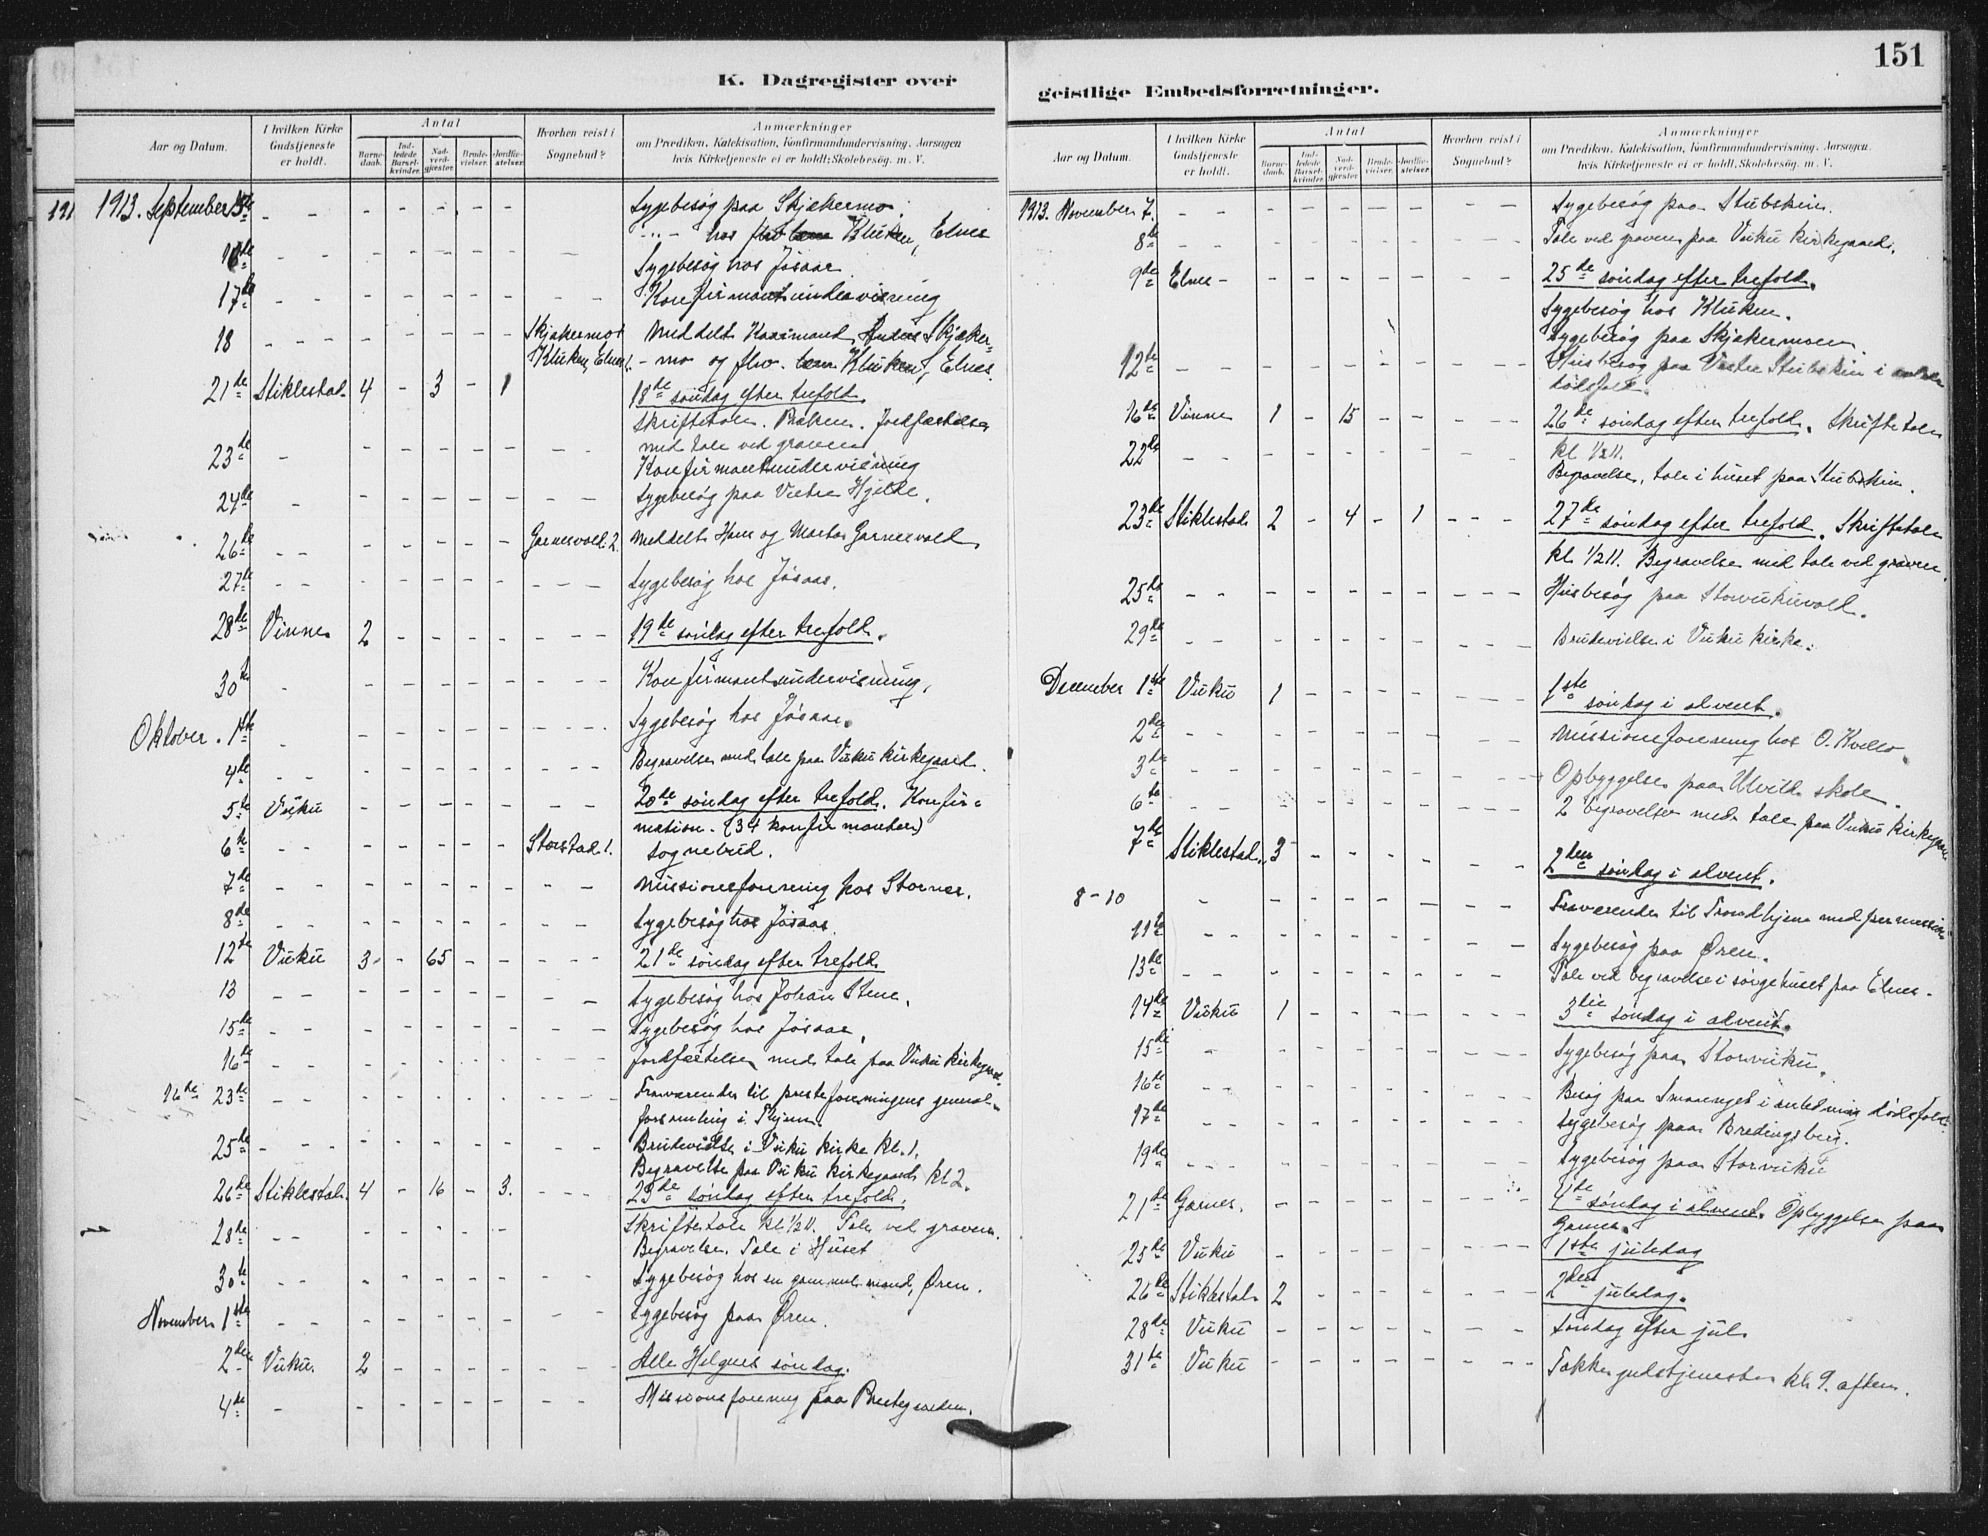 151
K. Dagregister over
geistlige Embedsforretninger.
Aar og Datum.
I hvilken Kirke Gudstjeneste er holdt.
Antal
Barnedaab.
Indledede Barselkvinder.
Nadverdgjæster.
Brudevielser.
Jordfæstelser.
Hvorhen reist i Sognebud?
Anmærkninger
om Prædiken, Katekisation, Konfirmandundervisning, Aarsagen
hvis Kirketjeneste ei er holdt; Skolebesøg. m. V.
1913. September 15de - - - - - - - Sygebesøg paa Skjækermo.
-"- hos Klüken, Elnes
16de - - - - - - - - Sygebesøg hos Jøsaas
17de - - - - - - - - - Konfirmantundervisning
18 - - - - - - - Skjækermo 1 Meddelt Anders Skjæker-
Klüken, Elnes 1. - mo og Klüken, Elnes.
21de Stiklestad 4 - 3 - 1 18de søndag efter trefold.
Skriftetale. Præken. Jordfæstelse
med tale ved graven
23de - - - - - - - - Konfirmantundervisning
24de - - - - - - - - - Sygebesøg paa Vestre Hjelde.
26de - - - - - - - Garnesvold. 2. Meddelt Hans og Marta Garnesvold
27de - - - - - - - - - - Sygebesøg hos Jøsaas.
28de Vinne 2 - - - - - - - 19de søndag efter trefold.
30te - - - - - - - - - Konfirmantundervisning.
Oktober. 1ste - - - - - - - - - Sygebesøg hos Jøsaas.
4de - - - - - - - - - - Begravelse med tale paa Vuku kirkegaard.
5te Vuku - - - - - - - - 20de søndag efter trefold. Konfir-
mation. (34 konfirmanter)
6te - - - - - - Storstad 1. Sognebud.
7de - - - - - - - - - Missionsforening hos Stornes.
8de - - - - - - - - - - Sygebesøg hos Jøsaas.
12te Vuku 3 - 65 - - - - - 21de søndag efter trefold
13 - - - - - - - - - Sygebesøg hos Johan Stene.
15de - - - - - - - - - Sygebesøg hos Jøsaas
16de - - - - - - - - - - Jordfæstelse med tale paa Vuku kirkegaard.
16de 23de - - - - - - - - - - Fraværende til presteforeningens general-
forsamling i Thjem.
25de - - - - - - - - - Brudevielse i Vuku kirke kl. 1.
Begravelse paa Vuku kirkegaard kl 2.
26de Stiklestad. 4 - 16 - 3. - - - 23de søndag efter trefold.
Skriftetale kl ½11. Tale ved graven.
28de - - - - - - - Begravelse. Tale i Huset
30te - - - - - - - - - - Sygebesøg hos en gammel mand, Øren.
November 1ste - - - - - - - - - Sygebesøg paa Øren.
2den Vuku. 2 - - - - - - - Alle Helgens søndag.
4de - - - - - - - - - Missionsforening paa Prestegaarden.
Aar og Datum.
I hvilken Kirke Gudstjeneste er holdt.
Antal
Barnedaab.
Indledede Barselkvinder.
Nadverdgjæster.
Brudevielser.
Jordfæstelser.
Hvorhen reist i Sognebud?
Anmærkninger
om Prædiken, Katekisation, Konfirmandundervisning, Aarsagen
hvis Kirketjeneste ei er holdt, Skolebesøg. m. V.
1913. November 7. - - - - - - - - - Sygebesøg paa Stubskin.
8de - - - - - - - - - - Tale ved graven paa Vuku kirkegaard.
9de Elnes - - - - - - - - 25de søndag efter trefold.
Sygebesøg hos Klüken.
Sygebesøg paa Skjækermoen.
12te - - - - - - - - Husbesøg paa Vestre Stubskin i
dødsfald.
16de Vinne 1 - 15 - - - - - 26de søndag efter trefold. Skriftetale
kl ½11.
22de - - - - - - - - - - Begravelse, tale i huset paa Stubskin.
23de Stiklestad 2 - 4 - 1 - - - 27de søndag efter trefold. Skriftetale
kl. ½11. Begravelse med tale ved graven.
25de - - - - - - - - - - Husbesøg paa Storvukuvald.
29de - - - - - - - - - - Brudevielse i Vuku kirke.
December 1ste Vuku 1 - - - - - - - 1ste søndag i advent.
2den - - - - - - - - - Missionsforening hos O. Kvello.
3de - - - - - - - - - - Opbyggelse paa Ulvild skole.
6te - - - - - - - - - - 2 begravelser med tale paa Vuku kirkegaard
7de Stiklestad. 3 - - - - - - 2den søndag i advent.
8-10 - - - - - - - - - Fraværende til Trondhjem med permission
11te - - - - - - - - - Sygebesøg paa Øren.
13de - - - - - - - - - - Tale ved begravelse i sørgehuset paa Elnes.
14de Vuku 1 - - - - - - - 3die søndag i advent.
15de - - - - - - - - - Sygebesøg paa Storvuku.
16de - - - - - - - - - - Besøg paa Smaaenget i anledning dødsfald.
17de - - - - - - - - - - Sygebesøg paa Bredingsberg.
19de - - - - - - - - - - Sygebesøg paa Storvuku
21de Garnes. - - - - - - - - 4de søndag i advent. Opbyggelse paa
Garnes.
25de Vuku - - - - - - - - 1ste juledag
26de Stiklestad 2 - - - - - - - 2den juledag.
28de Vuku - - - - - - - Søndag efter jul
31te Vuku - - - - - - - - Takkegudstjeneste kl. 9. aften.